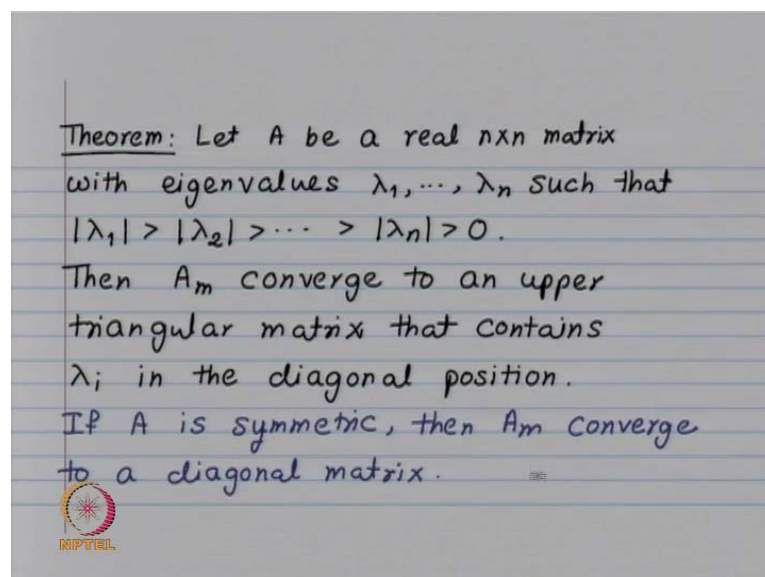 Theorem: Let A be a real n×n matrix
with eigenvalues λ₁, ..., λₙ such that
|λ₁| > |λ₂| > ... > |λₙ| > 0.
Then Aₘ converge to an upper
triangular matrix that contains
λᵢ in the diagonal position.
If A is symmetric, then Aₘ converge
to a diagonal matrix.
NPTEL